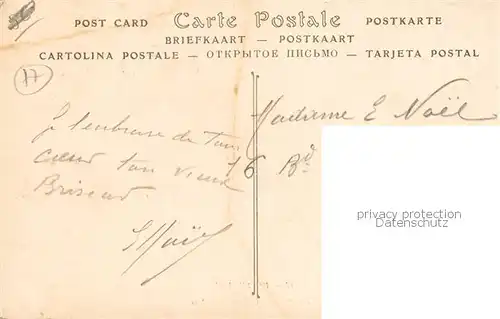 POST CARD Carte Postale POSTKARTE
BRIEFKAART — POSTKAART
CARTOLINA POSTALE — ОТКРЫТОЕ ПИСЬМО — TARJETA POSTAL
77
Je t'embrasse de tout
cœur ton vieux
E Noël
Madame E Noël
16 Bd
privacy protection
Datenschutz